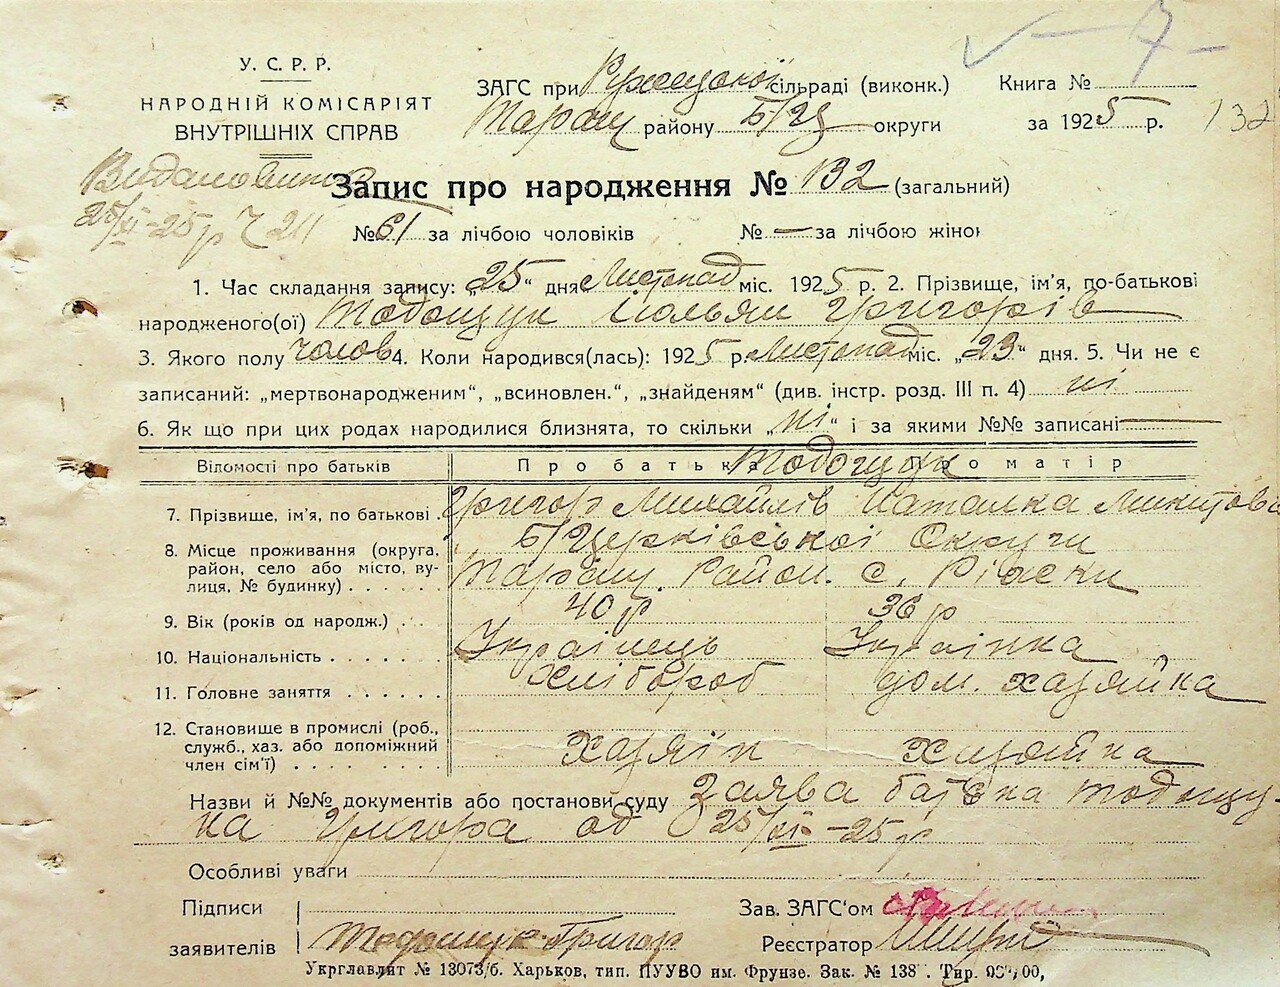 У. С. Р. Р.
НАРОДНІЙ КОМІСАРІЯТ
ВНУТРІШНІХ СПРАВ
ЗАГС при сільраді (виконк.)
Таращ району Б/Ц округи
Книга № 7
за 1925 р. 132
25/XI-25 р
Запис про народження № 132 (загальний)
№ 61 за лічбою чоловіків № — за лічбою жінок
1. Час складання запису: „25“ дня Листопад міс. 1925 р. 2. Прізвище, ім'я, по-батькові
народженого(ої) Тодощук Юльян Григорів
3. Якого полу чолов 4. Коли народився(лась): 1925 р. Листопад міс. „23“ дня. 5. Чи не є
записаний: „мертвонародженим“, „всиновлен.“, „знайденям“ (див. інстр. розд. III п. 4) ні
6. Як що при цих родах народилися близнята, то скільки „ні“ і за якими №№ записані —
Відомості про батьків Про батька Тодощук Про матір
7. Прізвище, ім'я, по батькові Григор Михайлів Наталка Микитова
8. Місце проживання (округа, район, село або місто, вулиця, № будинку) Б/Церківської Округи
Таращ. Район. с. Ріжки
9. Вік (років од народж.) 40 р 36 р
10. Національність Українець Українка
11. Головне заняття Хлібороб дом. хазяйка
12. Становище в промислі (роб., служб., хаз. або допоміжний член сім'ї) Хазяїн Хазяйка
Назви й №№ документів або постанови суду Заява батька Тодощу-
ка Григора од 25/XI-25 р
Особливі уваги
Підписи
заявителів Тодощук Григор
Зав. ЗАГС'ом
Реєстратор
Укрглавліт № 13073/б. Харьков, тип. ПУУВО им. Фрунзе. Зак. № 138 . Тир.